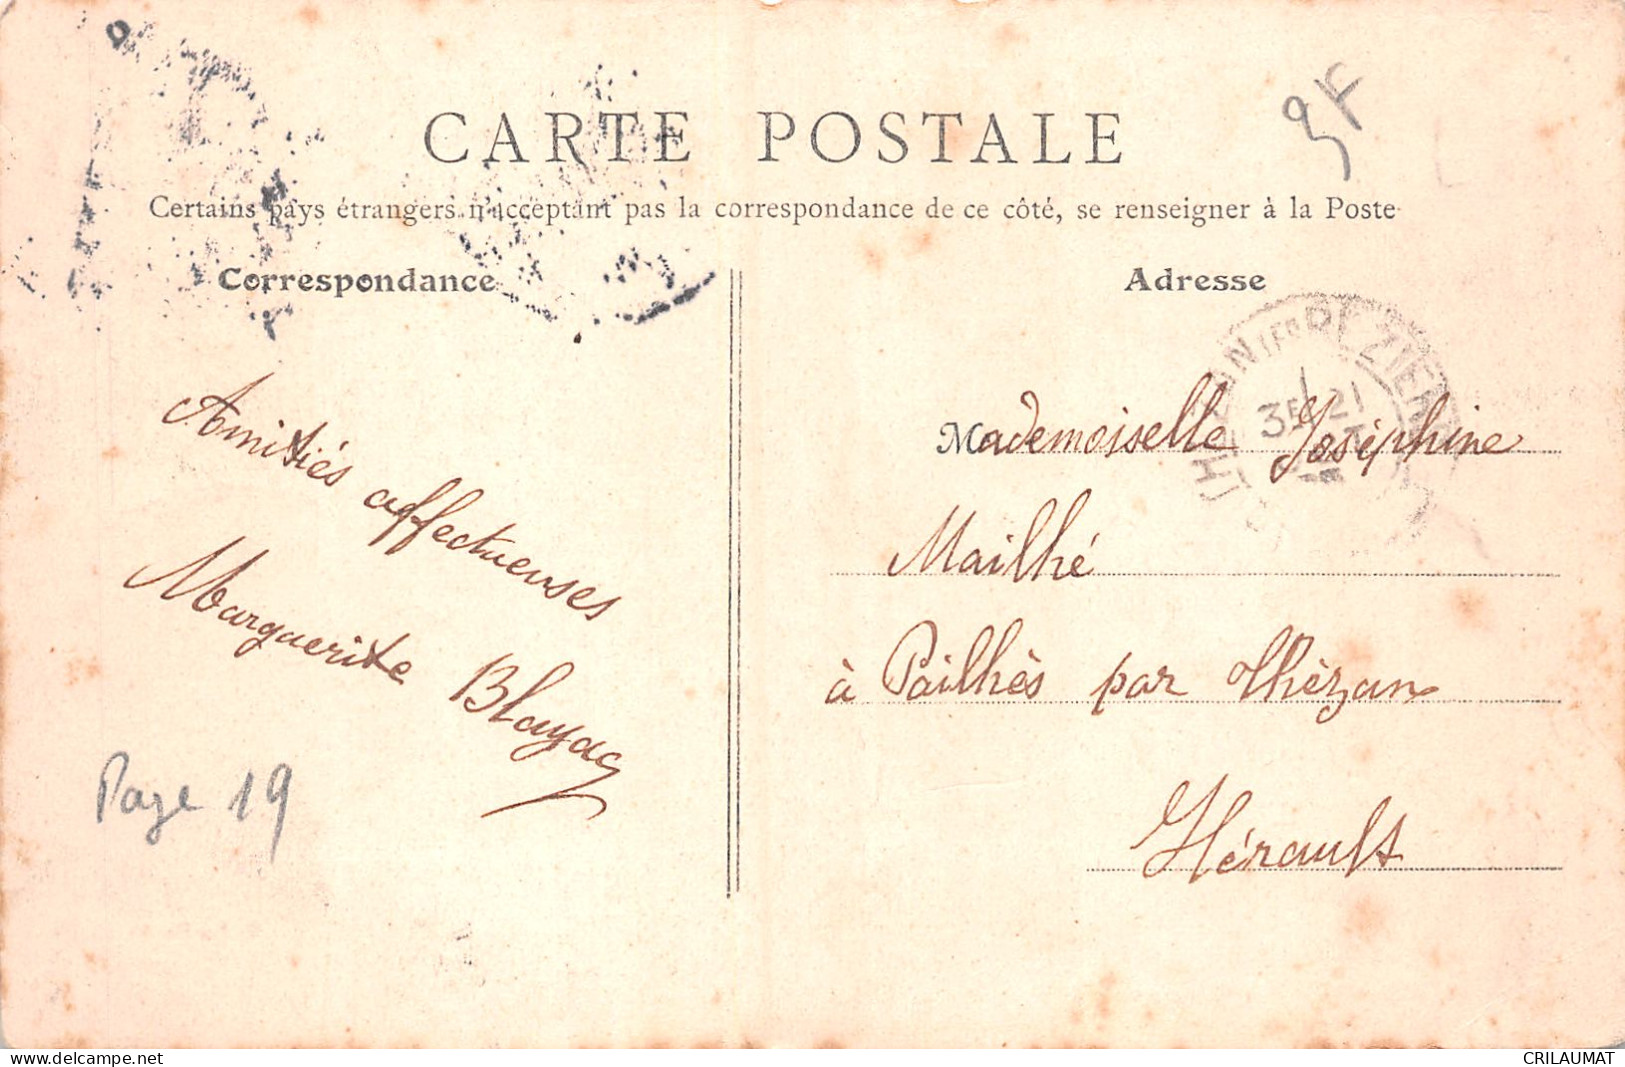 CARTE POSTALE
Certains pays étrangers n'acceptant pas la correspondance de ce côté, se renseigner à la Poste
Correspondance
Adresse
Amitiés affectueuses
Marguerite Blayac
Page 19
Mademoiselle Joséphine
Mailhé
à Pailhès par Thézan
Hérault
www.delcampe.net
CRILAUMAT